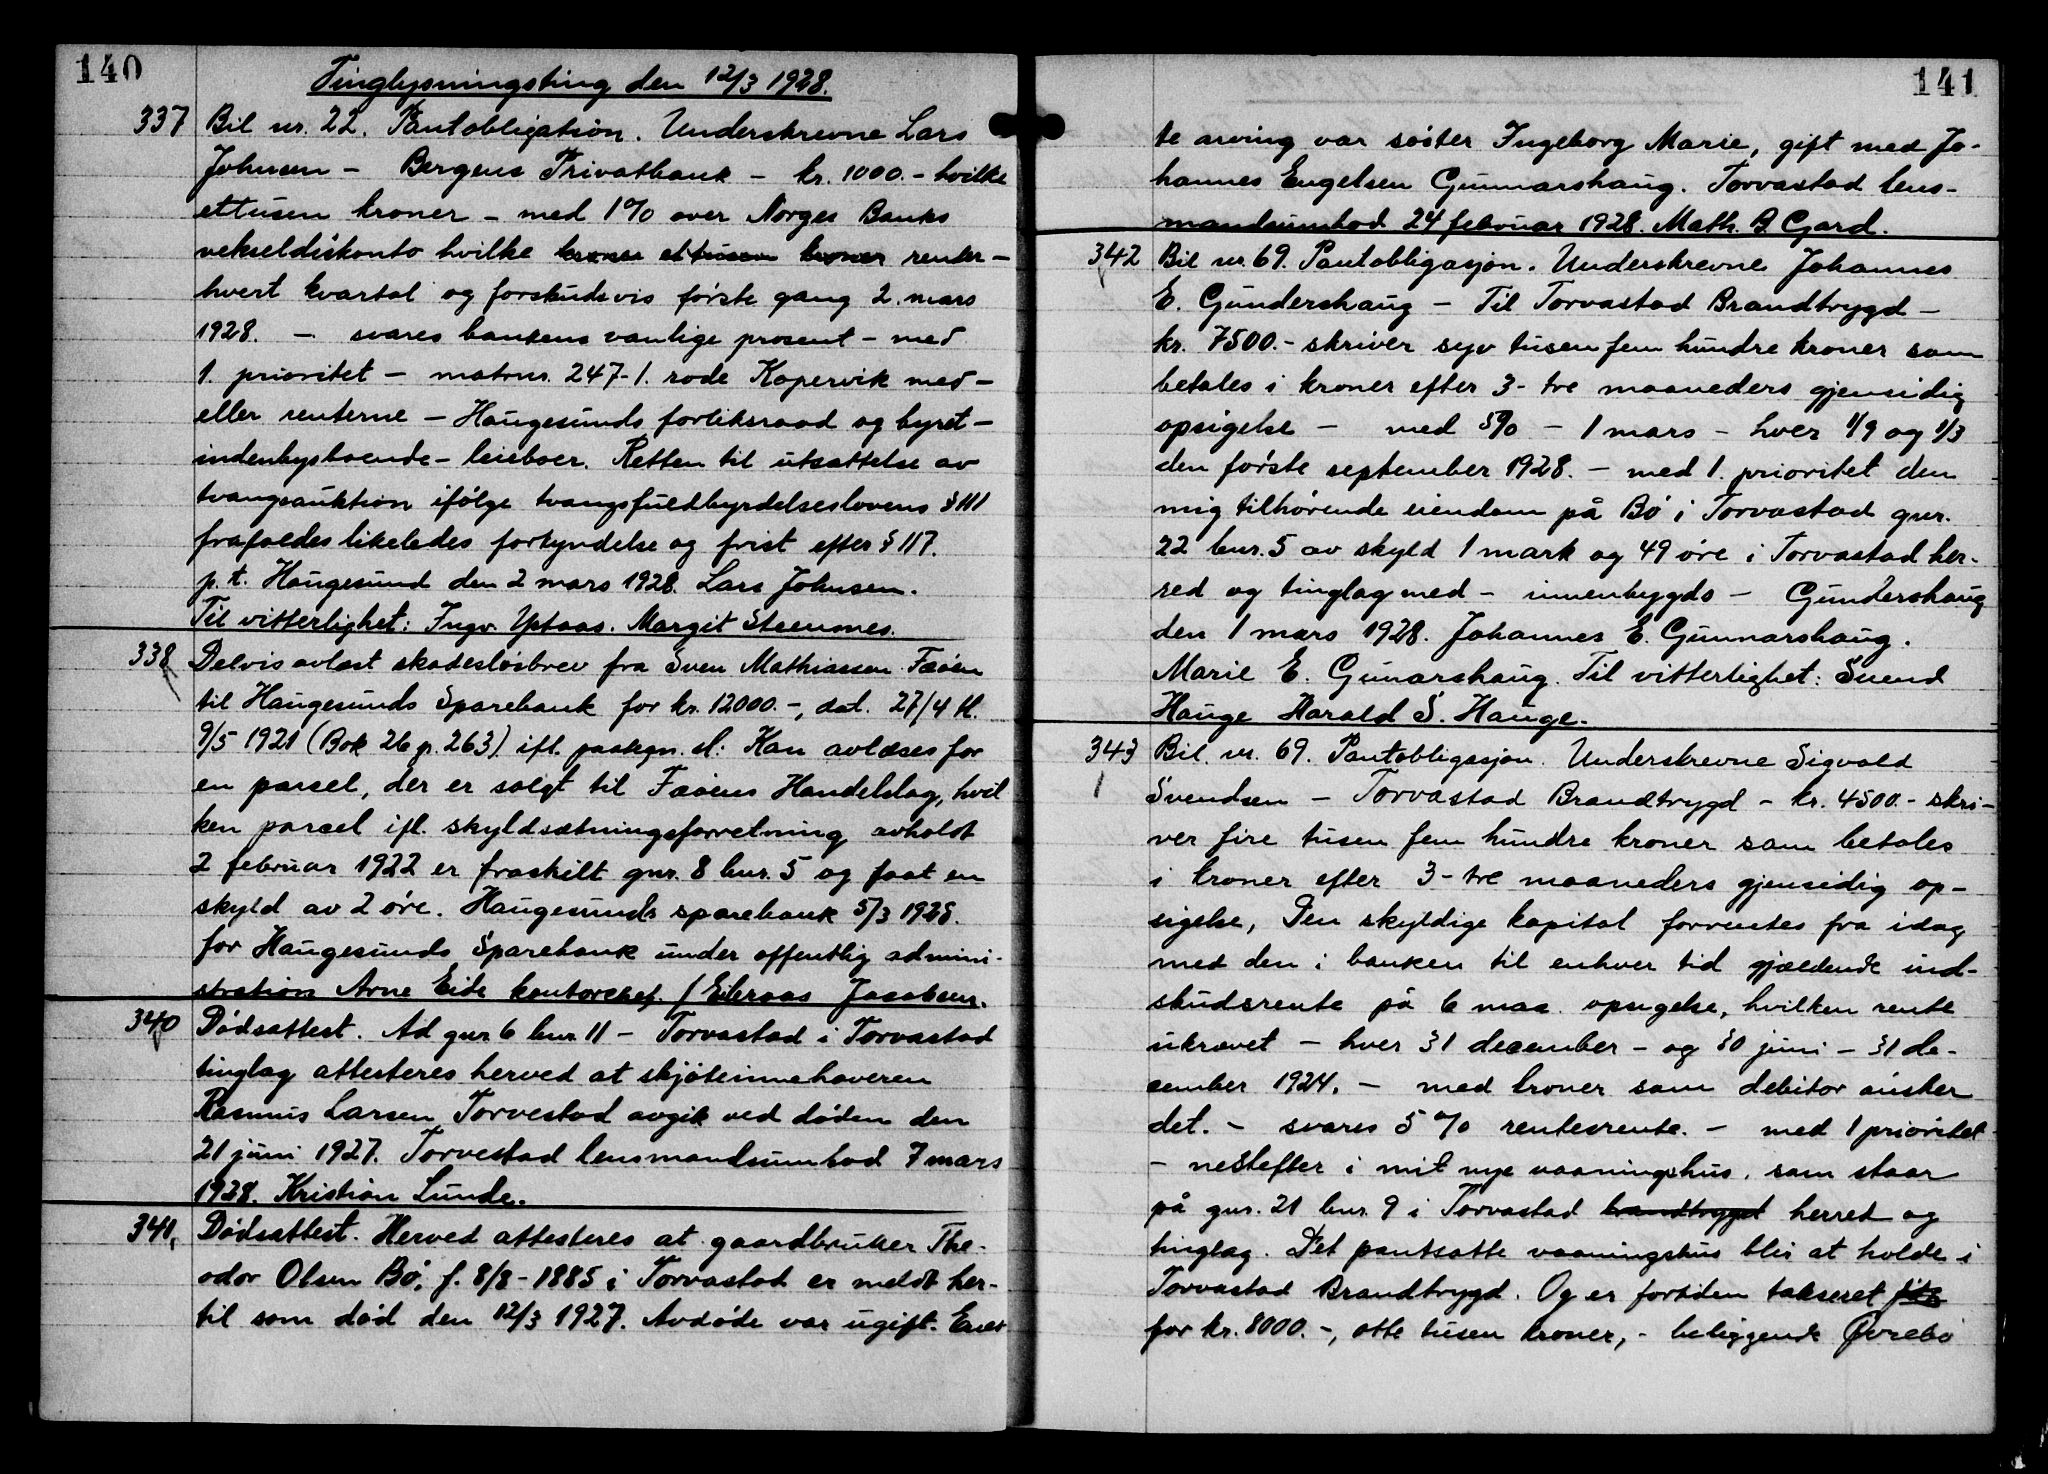 140
Tinglysningsting den 12/3 1928.
337 Bil nr. 22. Pantobligation. Underskrevne Lars
Johnsen - Bergens Privatbank - kr. 1000.- hvilke
ettusen kroner - med 1% over Norges Banks
vekseldiskonto hvilke kroner ettusen kroner renter -
hvert kvartal og forskudsvis første gang 2. mars
1928. - svares bankens vanlige prosent - med
1. prioritet - matrnr. 247-1. rode Kopervik med -
eller renterne - Haugesunds forliksraad og byret -
indenbysboende - leieboer. Retten til utsættelse av
tvangsauktion ifølge tvangsfuldbyrdelseslovens § 111
frafaldes likeledes forkyndelse og frist efter § 117.
p.t. Haugesund den 2 mars 1928. Lars Johnsen.
Til vitterlighet: Ingv. Ystaas. Margit Steensnes.
338 Delvis avlæst skadesløsbrev fra Sven Mathiassen Fæøen
til Haugesunds Sparebank for kr. 12000.-, dat. 27/4 tl.
9/5 1921 (Bok 26 p. 263) ifl. paategn. sl: Kan avlæses for
en parsel, der er solgt til Fæøens Handelslag, hvil
ken parsel ifl. skyldsætningsforretning avholdt
2 februar 1922 er fraskilt gnr. 8 bnr. 5 og faat en
skyld av 2 øre. Haugesunds sparebank 5/3 1928.
for Haugesunds Sparebank under offentlig admini-
stration Arne Eide kontorchef. / Eileraas Jacobsen.
340 Dødsattest. Ad gnr 6 bnr 11 - Torvastad i Torvastad
tinglag attesteres herved at skjøteinnehaveren
Rasmus Larsen Torvestad avgik ved døden den
21 juni 1927. Torvestad lensmandsumbod 7 mars
1928. Kristian Lunde.
341, Dødsattest. Herved attesteres at gaardbruker The-
odor Olsen Bø, f. 8/8-1885 i Torvastad er meldt her-
til som død den 12/3 1927. Avdøde var ugift. Enes
141
te arving var søster Ingeborg Marie, gift med Jo-
hannes Engelsen Gunnarshaug. Torvastad lens-
mandsumbod 24 februar 1928. Math. B Gard.
342 Bil nr. 69. Pantobligasjon. Underskrevne Johannes
E. Gundershaug - Til Torvastad Brandtrygd -
kr. 7500.- skriver syv tusen fem hundre kroner som
betales i kroner efter 3- tre maaneders gjensidig
opsigelse - med 5% - 1 mars - hver 1/9 og 1/3
den første september 1928. - med 1. prioritet den
mig tilhørende eiendom på Bø i Torvastad gnr.
22 bnr. 5 av skyld 1 mark og 49 øre i Torvastad her-
red og tinglag med - innenbygds - Gundershaug
den 1 mars 1928. Johannes E. Gunnarshaug.
Marie E. Gunarshaug. Til vitterlighet: Svend
Hauge Harald S. Hauge.
343 Bil. nr. 69. Pantobligasjon. Underskrevne Sigvald
Svendsen - Torvastad Brandtrygd - kr. 4500.- skri-
ver fire tusen fem hundre kroner som betales
i kroner efter 3- tre maaneders gjensidig op-
sigelse, Den skyldige kapital forrentes fra idag
med den i banken til enhver tid gjældende ind-
skudsrente på 6 maa. opsigelse, hvilken rente
ukrævet - hver 31 december - og 30 juni - 31 de-
cember 1924. - med kroner som debitor ønsker
det. - svares 5 % rentesrente. - med 1 prioritet
- nestefter i mit nye vaaningshus, som staar
på gnr. 21 bnr. 9 i Torvastad brandtrygd herred og
tinglag. Det pantsatte vaaningshus blir at holde i
Torvastad Brandtrygd. Og er fortiden takseret
for kr. 8000.-, otte tusen kroner, - beliggende Øvrebø